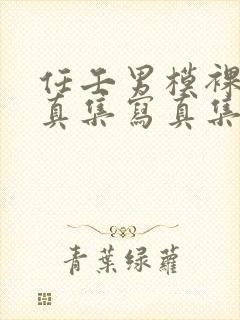 任壬男模裸
真集寫真集
青葉绿蘿